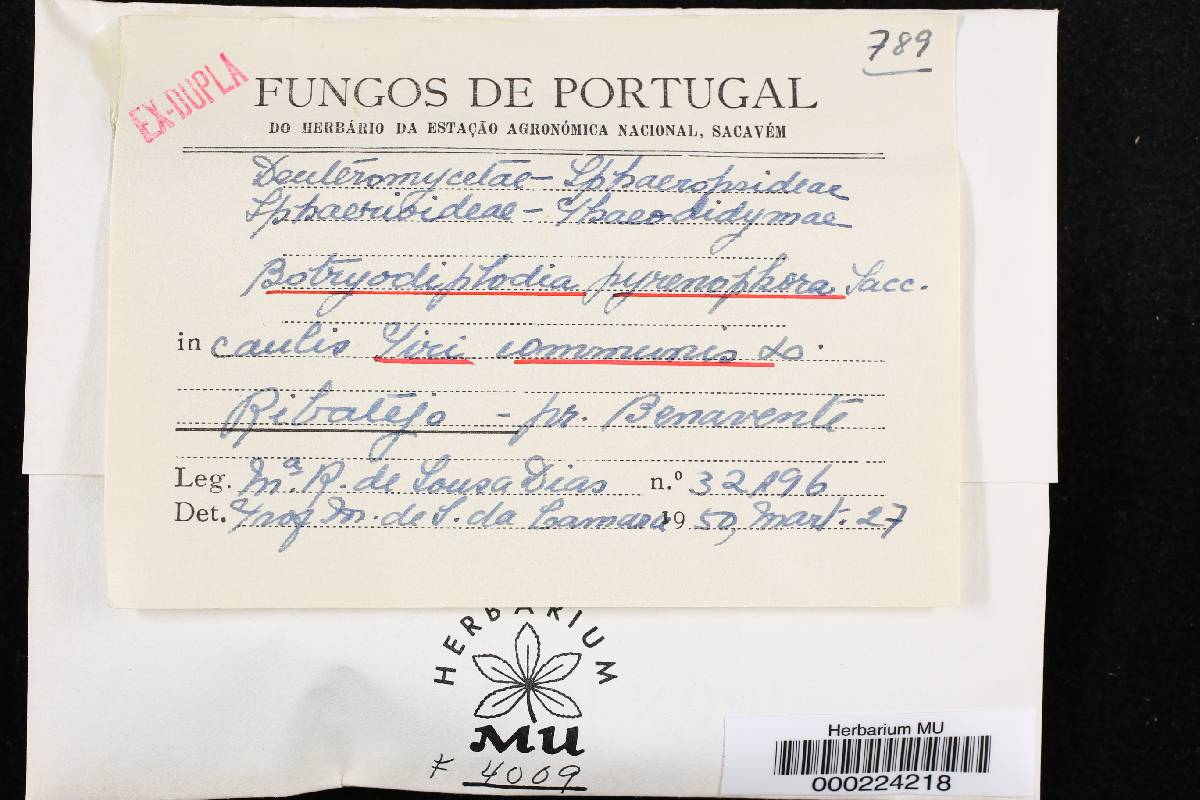 789
EX-DUPLA
FUNGOS DE PORTUGAL
DO HERBÁRIO DA ESTAÇÃO AGRONÓMICA NACIONAL, SACAVÉM
Deuteromycetae - Sphaeropsideae
Sphaerioideae - Phaeodidymae
Botryodiplodia pyrenophora Sacc.
in caulis Piri communis Lo.
Ribatejo - pr. Benavente
Leg. Mª. R. de Sousa Dias n.º 32196
Det. Prof. M. de S. da Camara 1950, Mart. 27
HERBARIUM
MU
F 4009
Herbarium MU
000224218